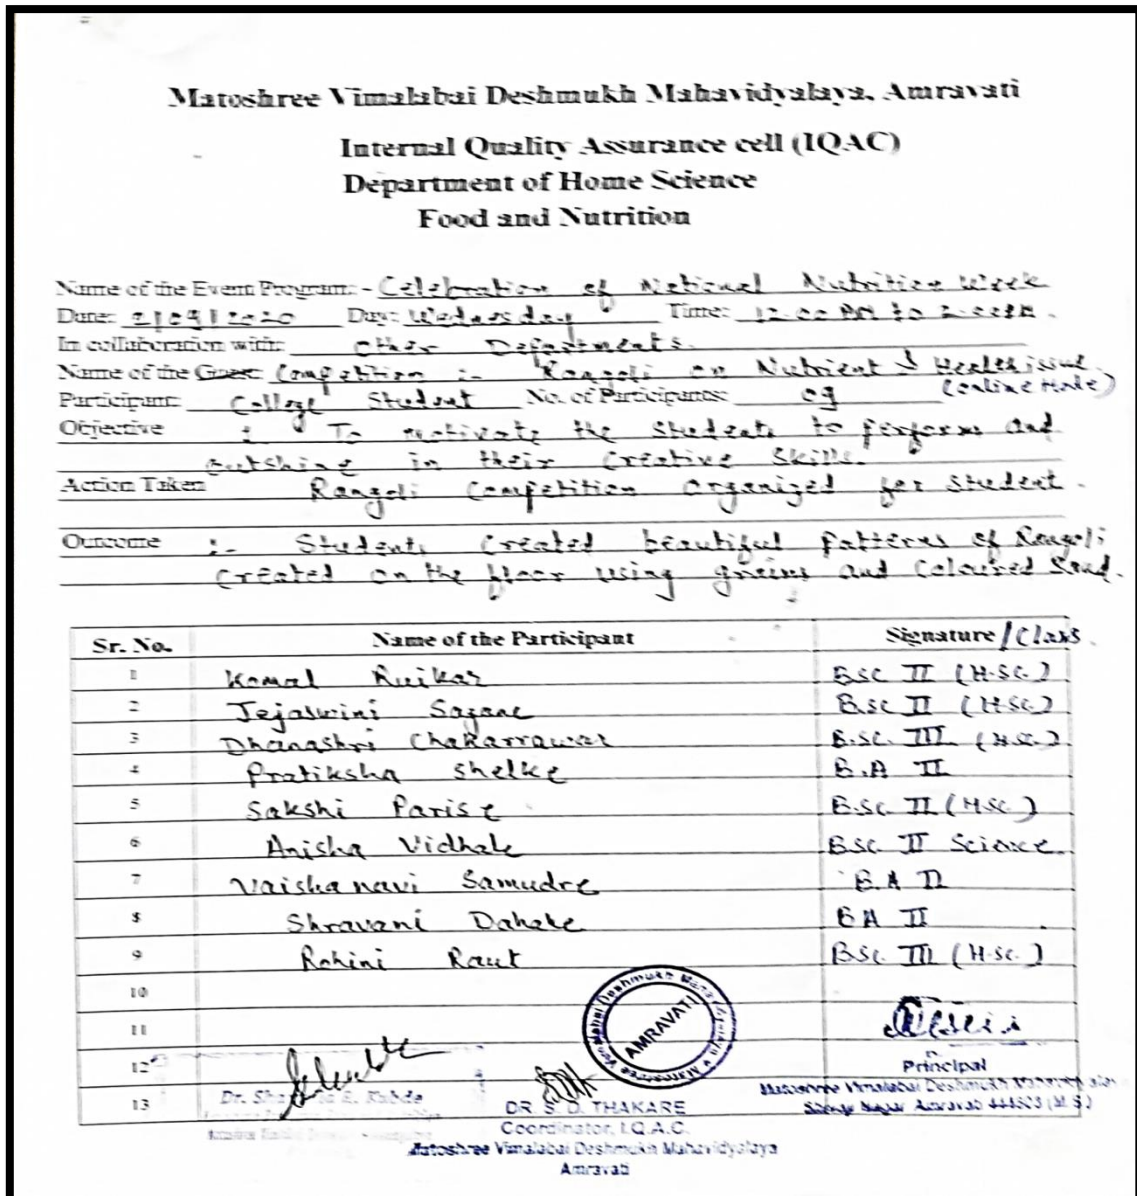 Matoshree Vimalabai Deshmukh Mahavidyalaya, Amravati
Internal Quality Assurance cell (IQAC)
Department of Home Science
Food and Nutrition
Name of the Event Program: - Celebration of National Nutrition Week
Date: 2/09/2020 Day: Wednesday Time: 12-00 PM to 2-00PM.
In collaboration with: Other Departments.
Name of the Guest: Competition :- Rangoli on Nutrient & Health issue.
(online Mode)
Participant: College Student No. of Participants: 09
Objective : To motivate the Students to perform and
outshine in their Creative Skills.
Action Taken Rangoli Competition Organized for Student.
Outcome :- Students Created beautiful patterns of Rangoli
Created on the floor using grains and Coloured Sand.
Sr. No. Name of the Participant Signature / Class
1 Komal Ruikar BSC II (H-SC.)
2 Tejaswini Sagane B.Sc II (H.SC.)
3 Dhanashri Chakarrawar B.SC. III (H.SC.)
4 Pratiksha Shelke B.A II
5 Sakshi Parise B.SC II (H.SC.)
6 Anisha Vidhale BSC II Science
7 Vaishanavi Samudre B.A II
8 Shravani Dahake BA II
9 Rohini Raut BSC III (H-SC.)
10
11
12
13
AMRAVATI
Principal
Matoshree Vimalabai Deshmukh
Nagar Amravati (M.S.)
Dr. E. Kubde
DR. S. D. THAKARE
Coordinator, I.Q.A.C.
Matoshree Vimalabai Deshmukh Mahavidyalaya
Amravati